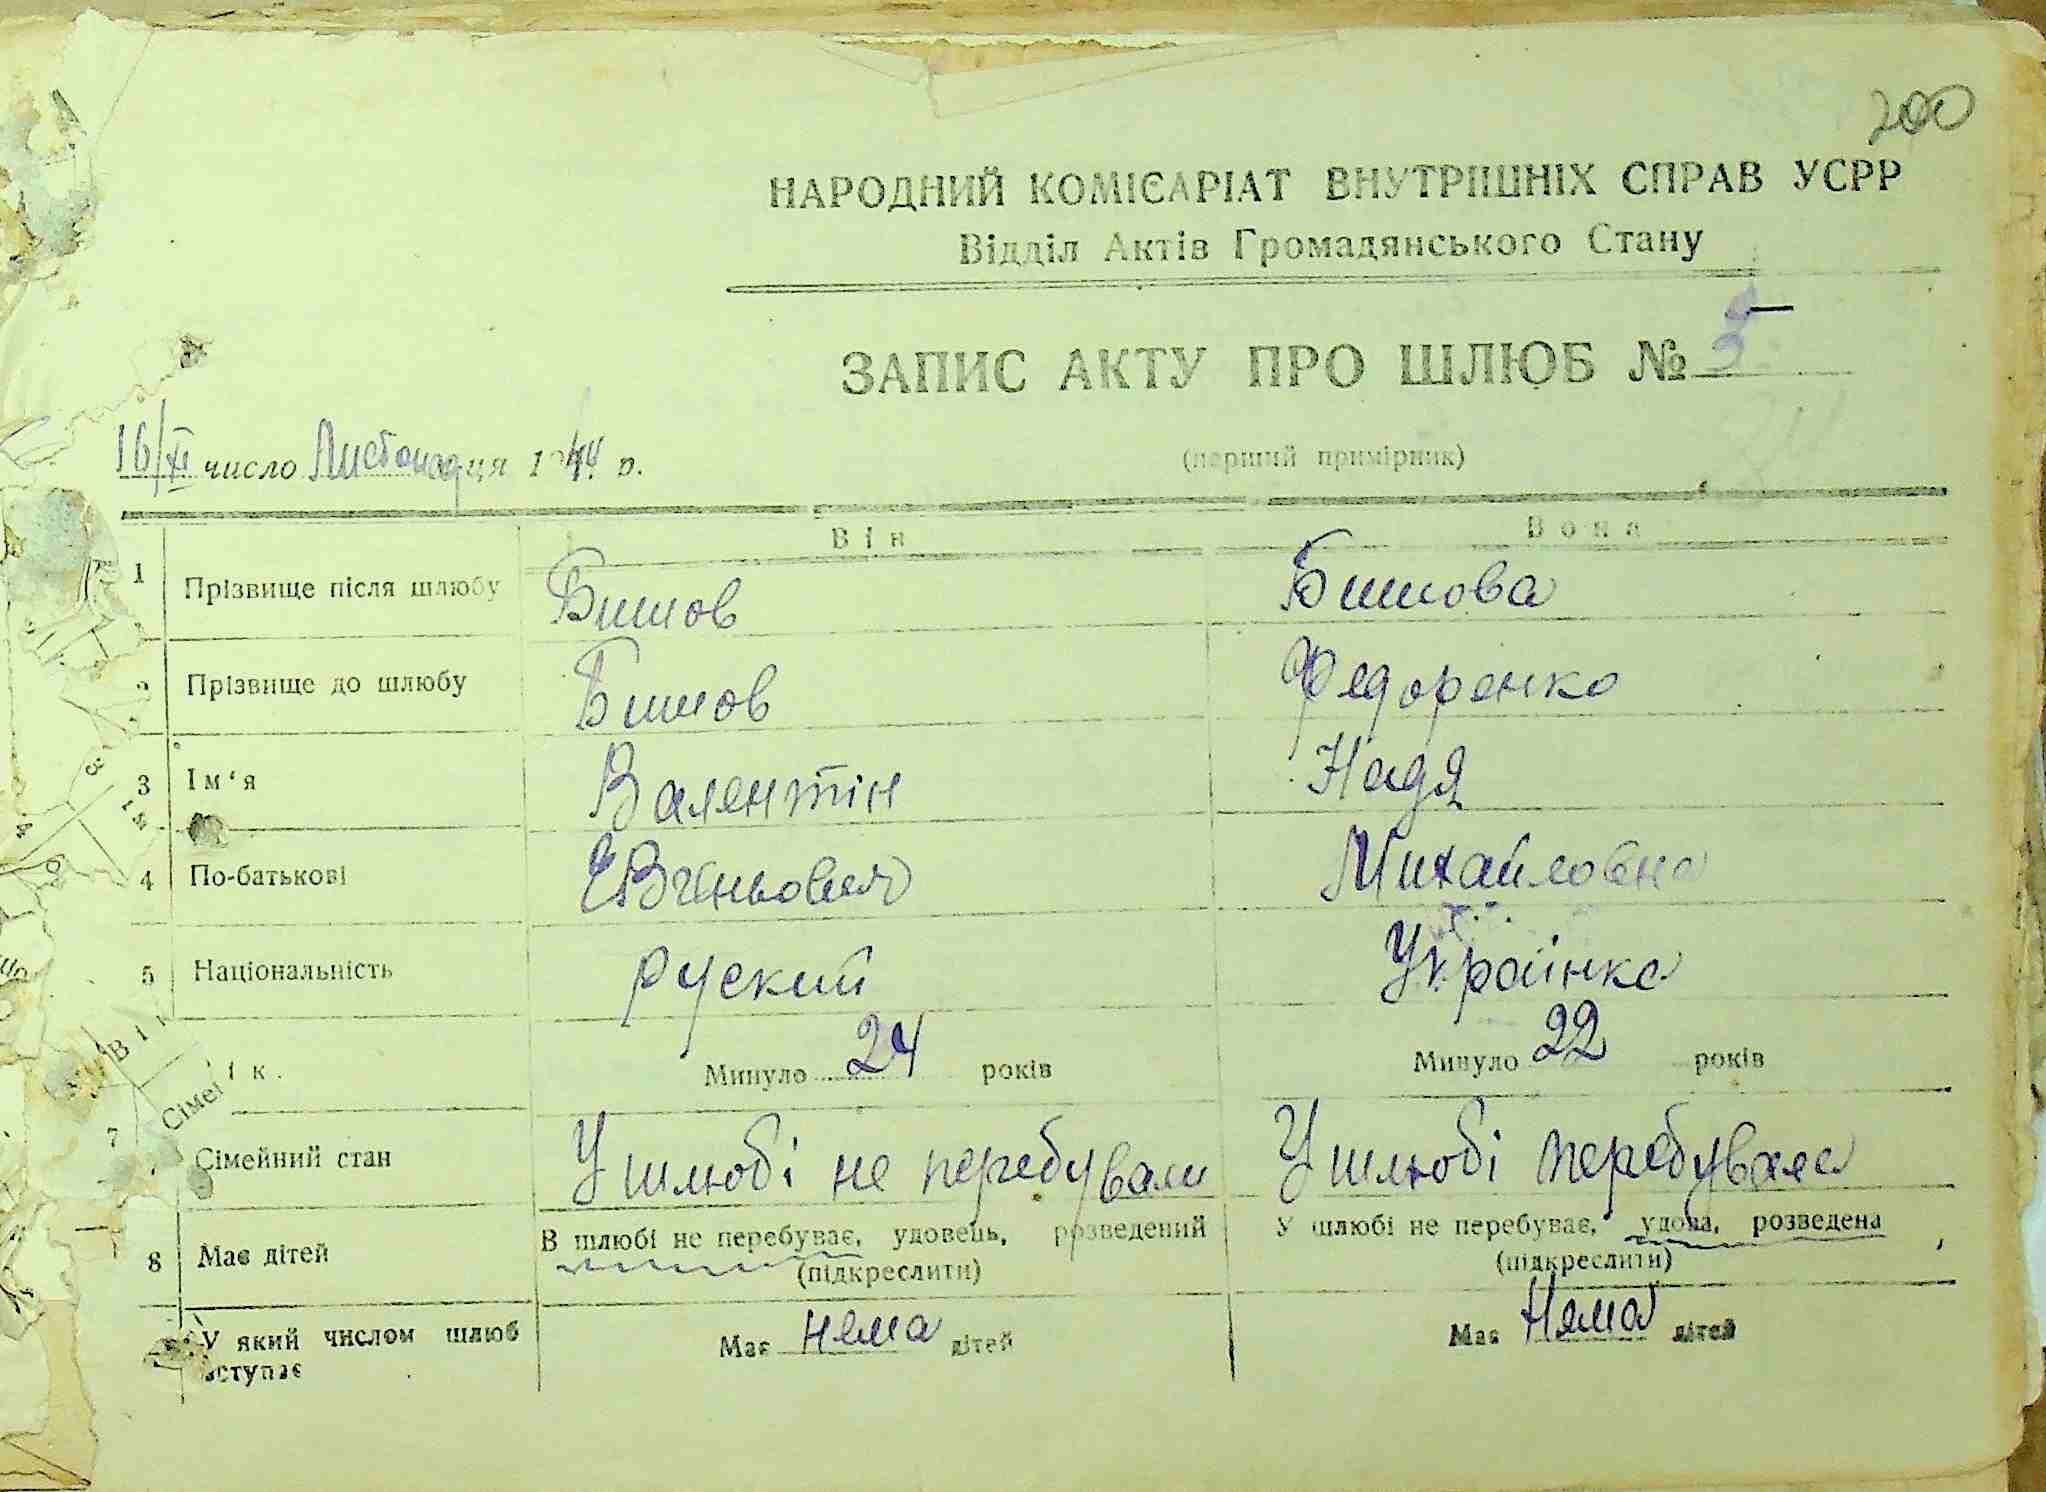 200
НАРОДНИЙ КОМІСАРІАТ ВНУТРІШНІХ СПРАВ УСРР
Відділ Актів Громадянського Стану
ЗАПИС АКТУ ПРО ШЛЮБ № 5
16/XI число Листопадця 1944 р.
(перший примірник)
Він Вона
1 Прізвище після шлюбу Бишов Бишова
2 Прізвище до шлюбу Бишов Федоренко
3 Ім'я Валентін Надя
4 По-батькові Михайловна
5 Національність руский Українка
ік. Минуло 24 років Минуло 22 років
7 Сімейний стан У шлюбі не перебували У шлюбі перебувала
8 Має дітей В шлюбі не перебуває, удовець, розведений У шлюбі не перебуває, удова, розведена
(підкреслити) (підкреслити)
У який числом шлюб вступає Має няма дітей Має Няма дітей